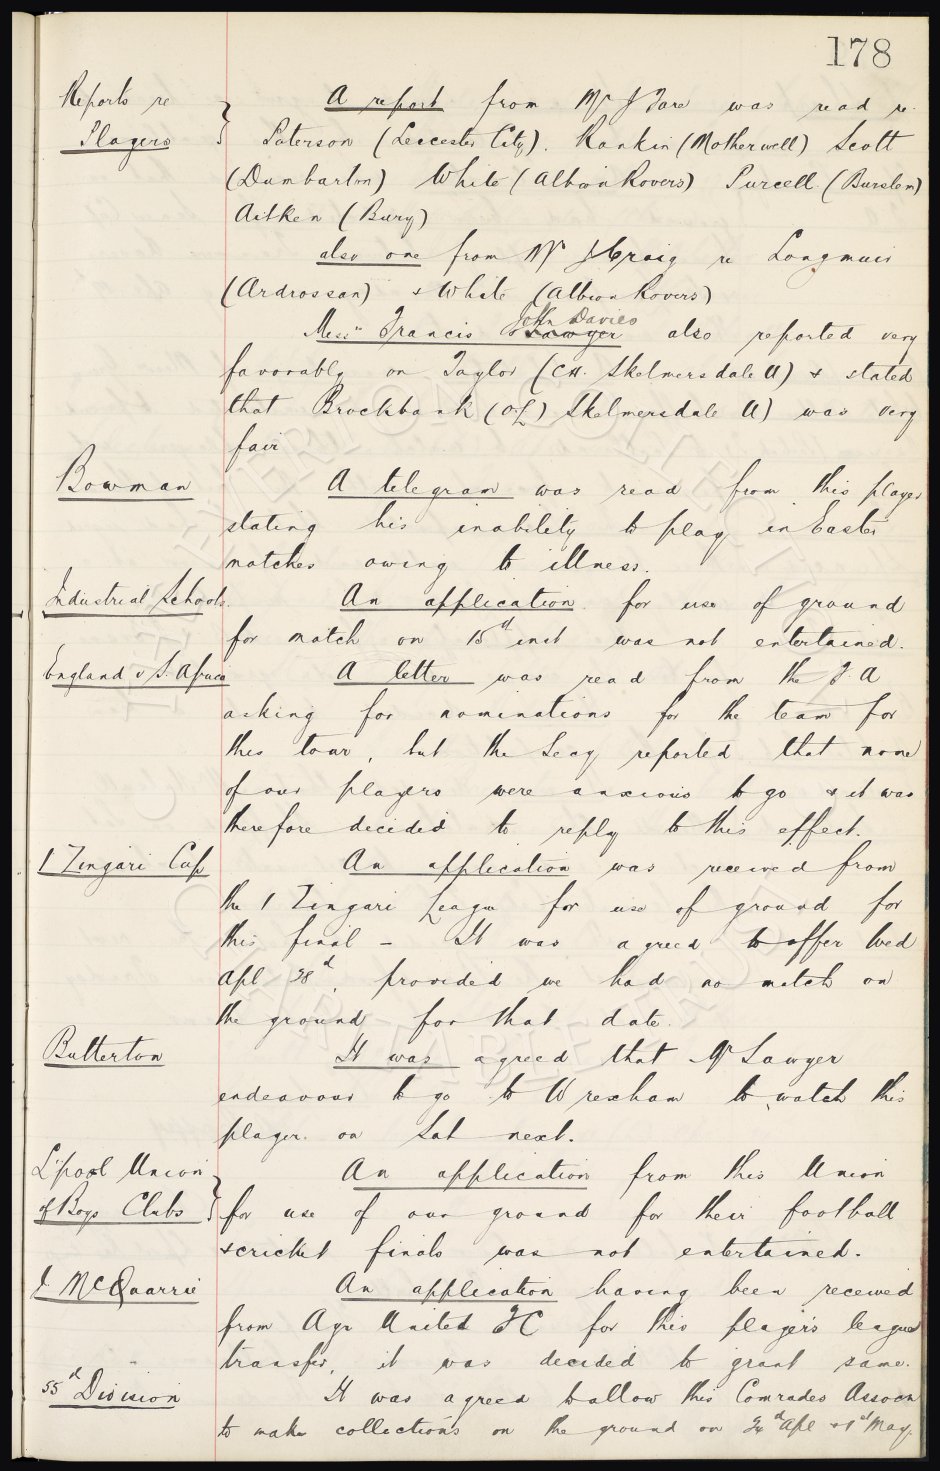 178
Reports re
Players
A report from Mr J Fare was read re.
Paterson (Leicester City). Rankin (Motherwell) Scott
(Dumbarton) White (Albion Rovers) Purcell. (Burslem)
Aitken (Bury)
also one from Mr J Craig re Longmuir
(Ardrossan) & White (Albion Rovers)
John Davies
Messrs Francis Sawyer also reported very
favorably on Taylor (CH. Skelmersdale U) & stated
that Brockbank (OL) Skelmersdale U) was very
fair
Bowman
A telegram was read from this player
stating his inability to play in Easter
matches owing to illness.
Industrial Schools.
An application for use of ground
for match on 15th inst was not entertained.
England v S. Africa
A letter was read from the F.A
asking for nominations for the team for
this tour, but the Secy reported that none
of our players were anxious to go & it was
therefore decided to reply to this effect.
I Zingari Cup
An application was received from
the I Zingari League for use of ground for
this final - It was agreed to offer Wed
Apl 28d, provided we had no match on
the ground for that date.
Butterton
It was agreed that Mr Sawyer
endeavour to go to Wrexham to watch this
player. on Sat next.
L'pool Union
of Boys Clubs
An application from this Union
for use of our ground for their football
& cricket finals was not entertained.
J McQuarrie
An application having been received
from Ayr United FC for this player's league
transfer, it was decided to grant same.
55d Division
It was agreed to allow this Comrades Assocn
to make collections on the ground on 24d Apl & 1st May.